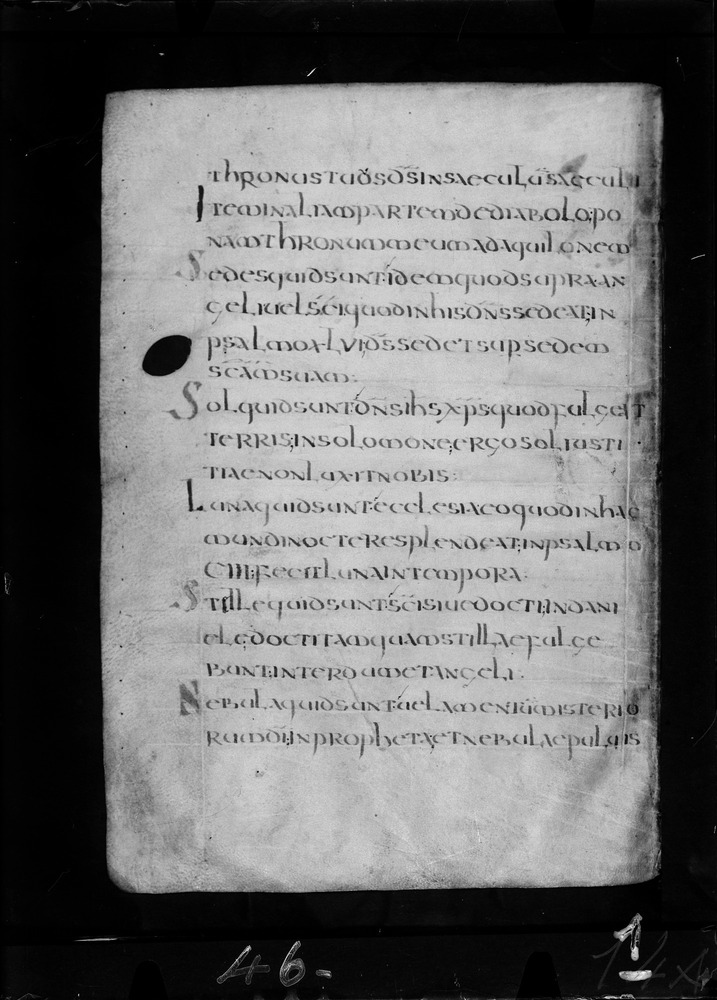 thronus tuus ds in saecula saeculi
Item in aliam partem de diabolo; po
nam thronum meum ad aquilonem
Sedes quid sunt idem quod supra an
geli uel sci quod in his dns sedeat; in
psalmo XLVI; ds sedet sup sedem
scam suam:
Sol quid sunt dns ihs xps quod fulgeat
terris; in solomone; ergo sol iusti
tiae non luxit nobis:
Luna quid sunt ecclesia eo quod in hac
mundi nocte resplendeat; in psalmo
CIII; fecit luna in tempora:
Stelle quid sunt sci siue docti; in dani
elo docti tamquam stillae fulge
bunt; interdum et angeli:
Nebula quid sunt uelamentu misterio
rum di; in propheta et nebula epuluis
46-
1